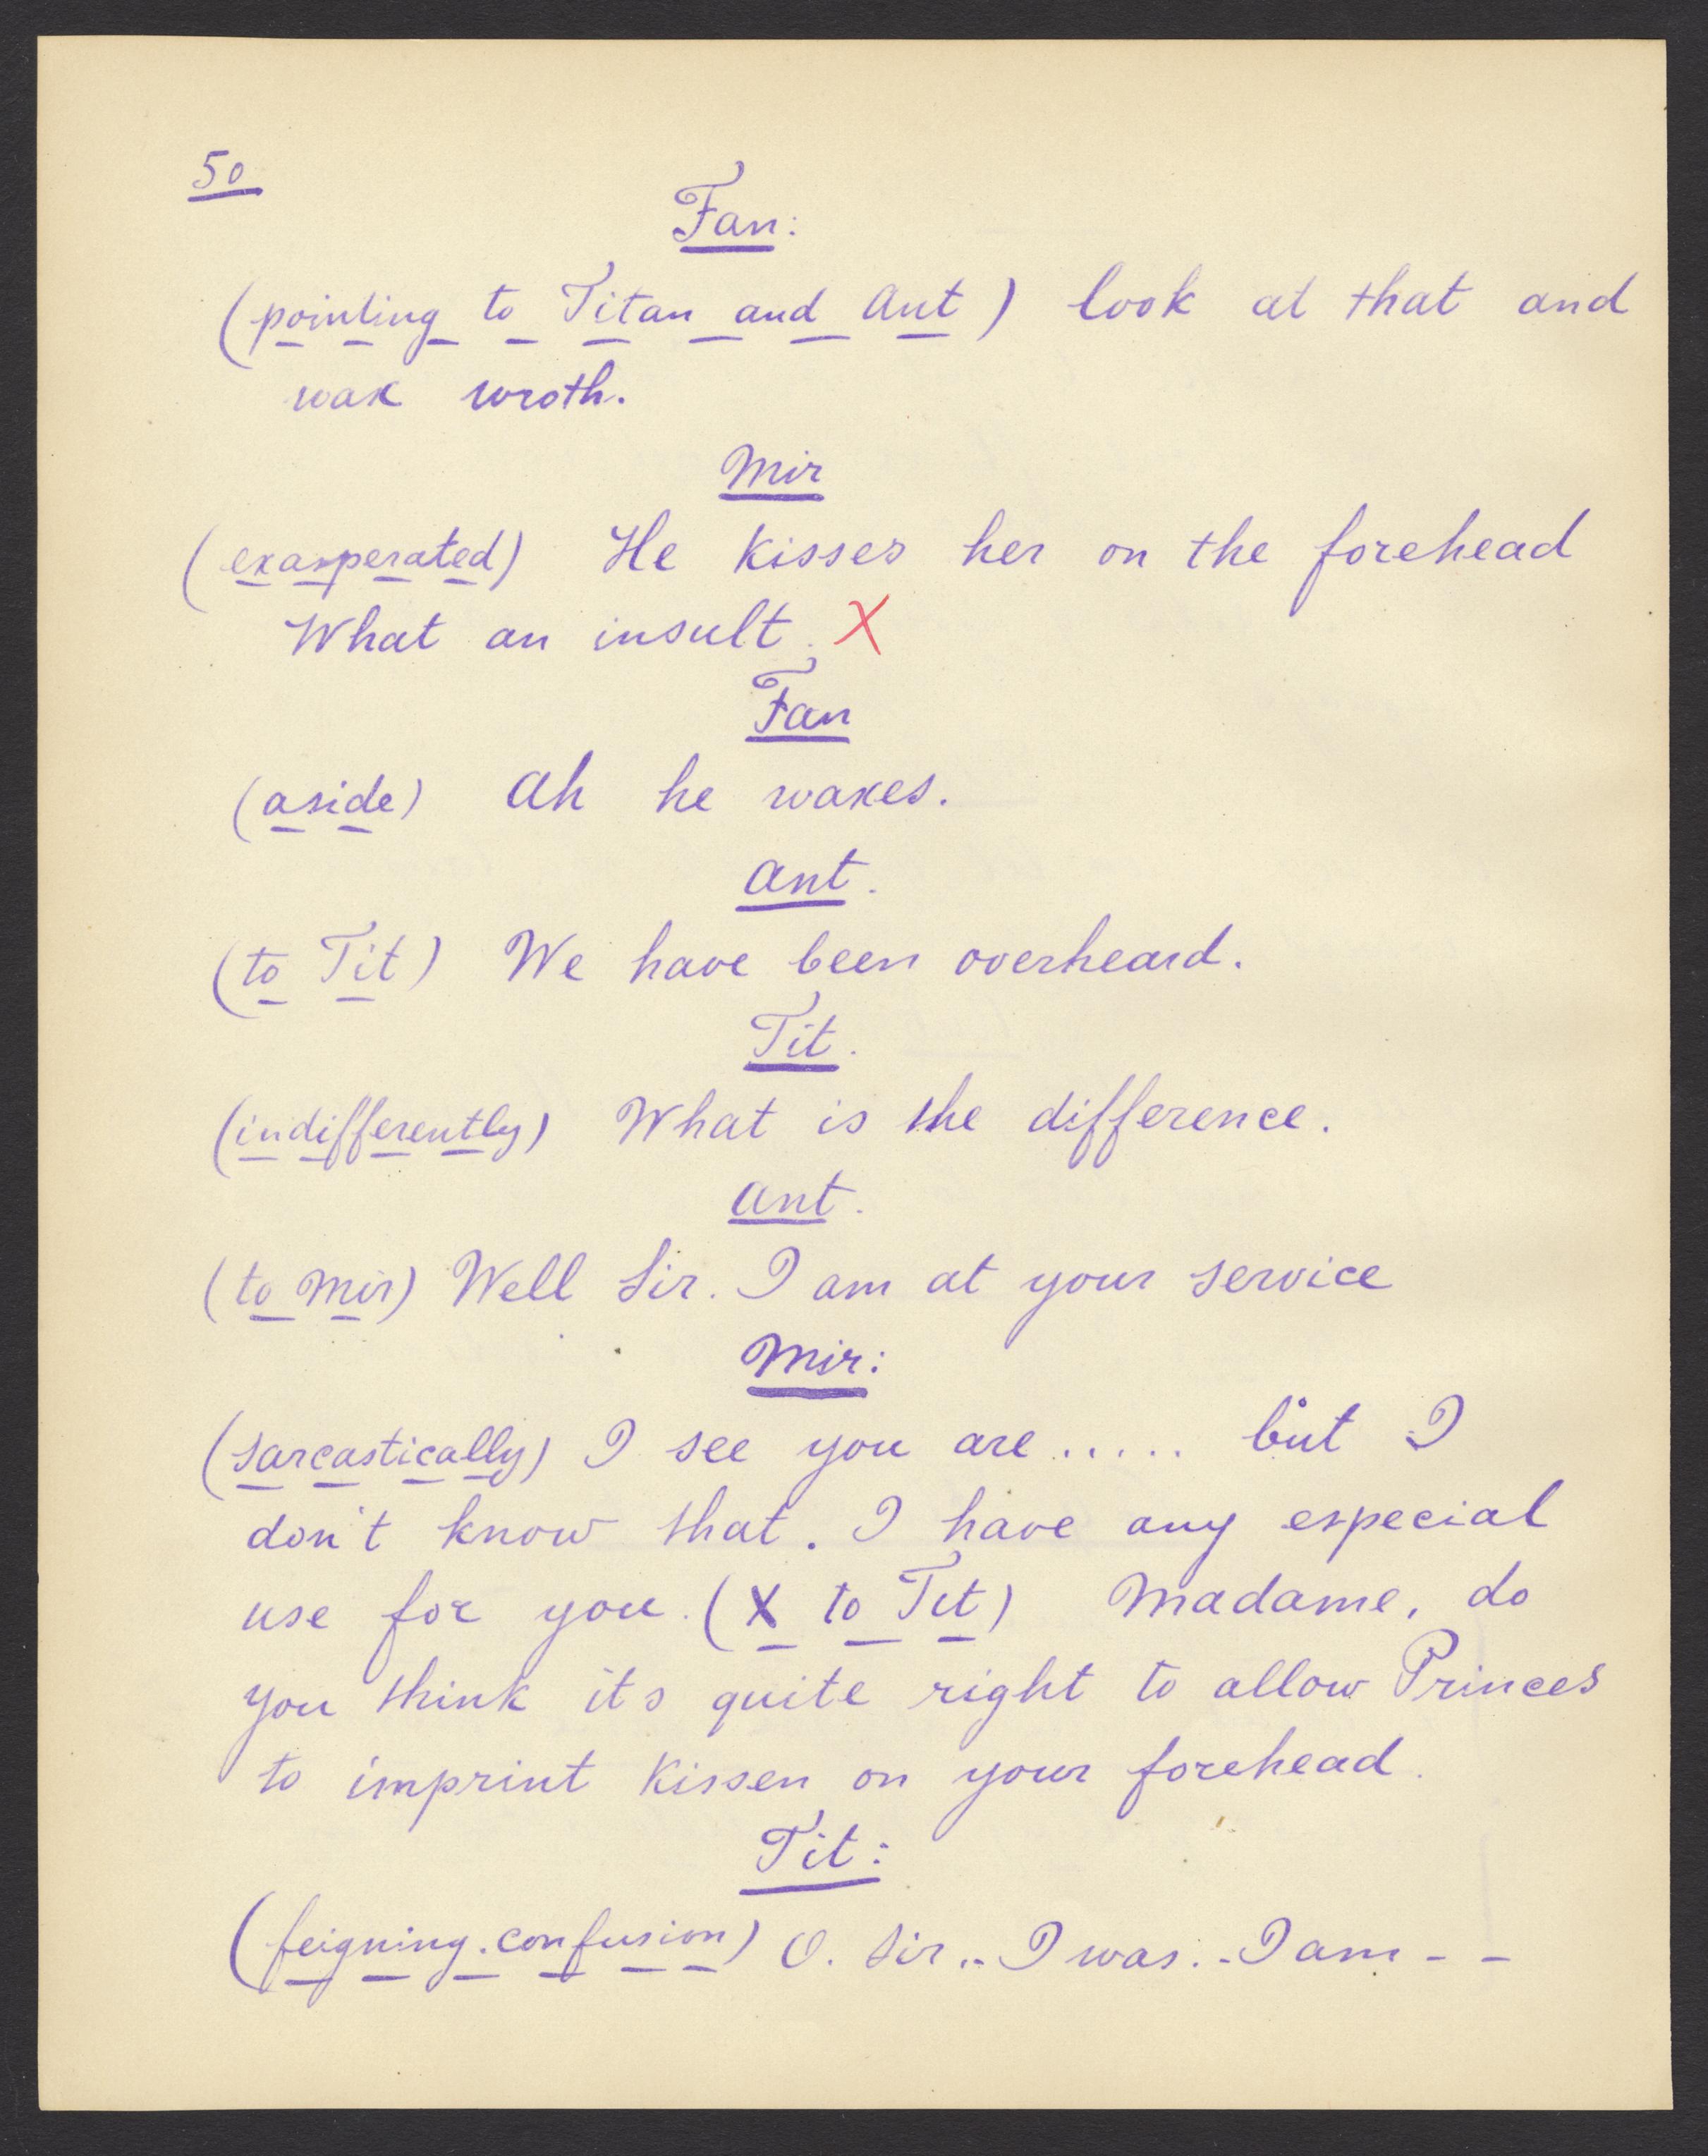 50
Fan:
(pointing to Titan and Ant) look at that and
wax wroth.
Mir
(exasperated) He kisses her on the forehead
What an insult. X
Fan
(aside) Ah he waxes.
Ant.
(to Tit) We have been overheard.
Tit.
(indifferently) What is the difference.
Ant.
(to Mir) Well Sir. I am at your service
Mir:
(sarcastically) I see you are..... but I
don't know that. I have any especial
use for you. (X to Tit) Madame, do
you think its quite right to allow Princes
to imprint kissen on your forehead.
Tit:
(feigning confusion) O. Sir.. I was.. I am - -